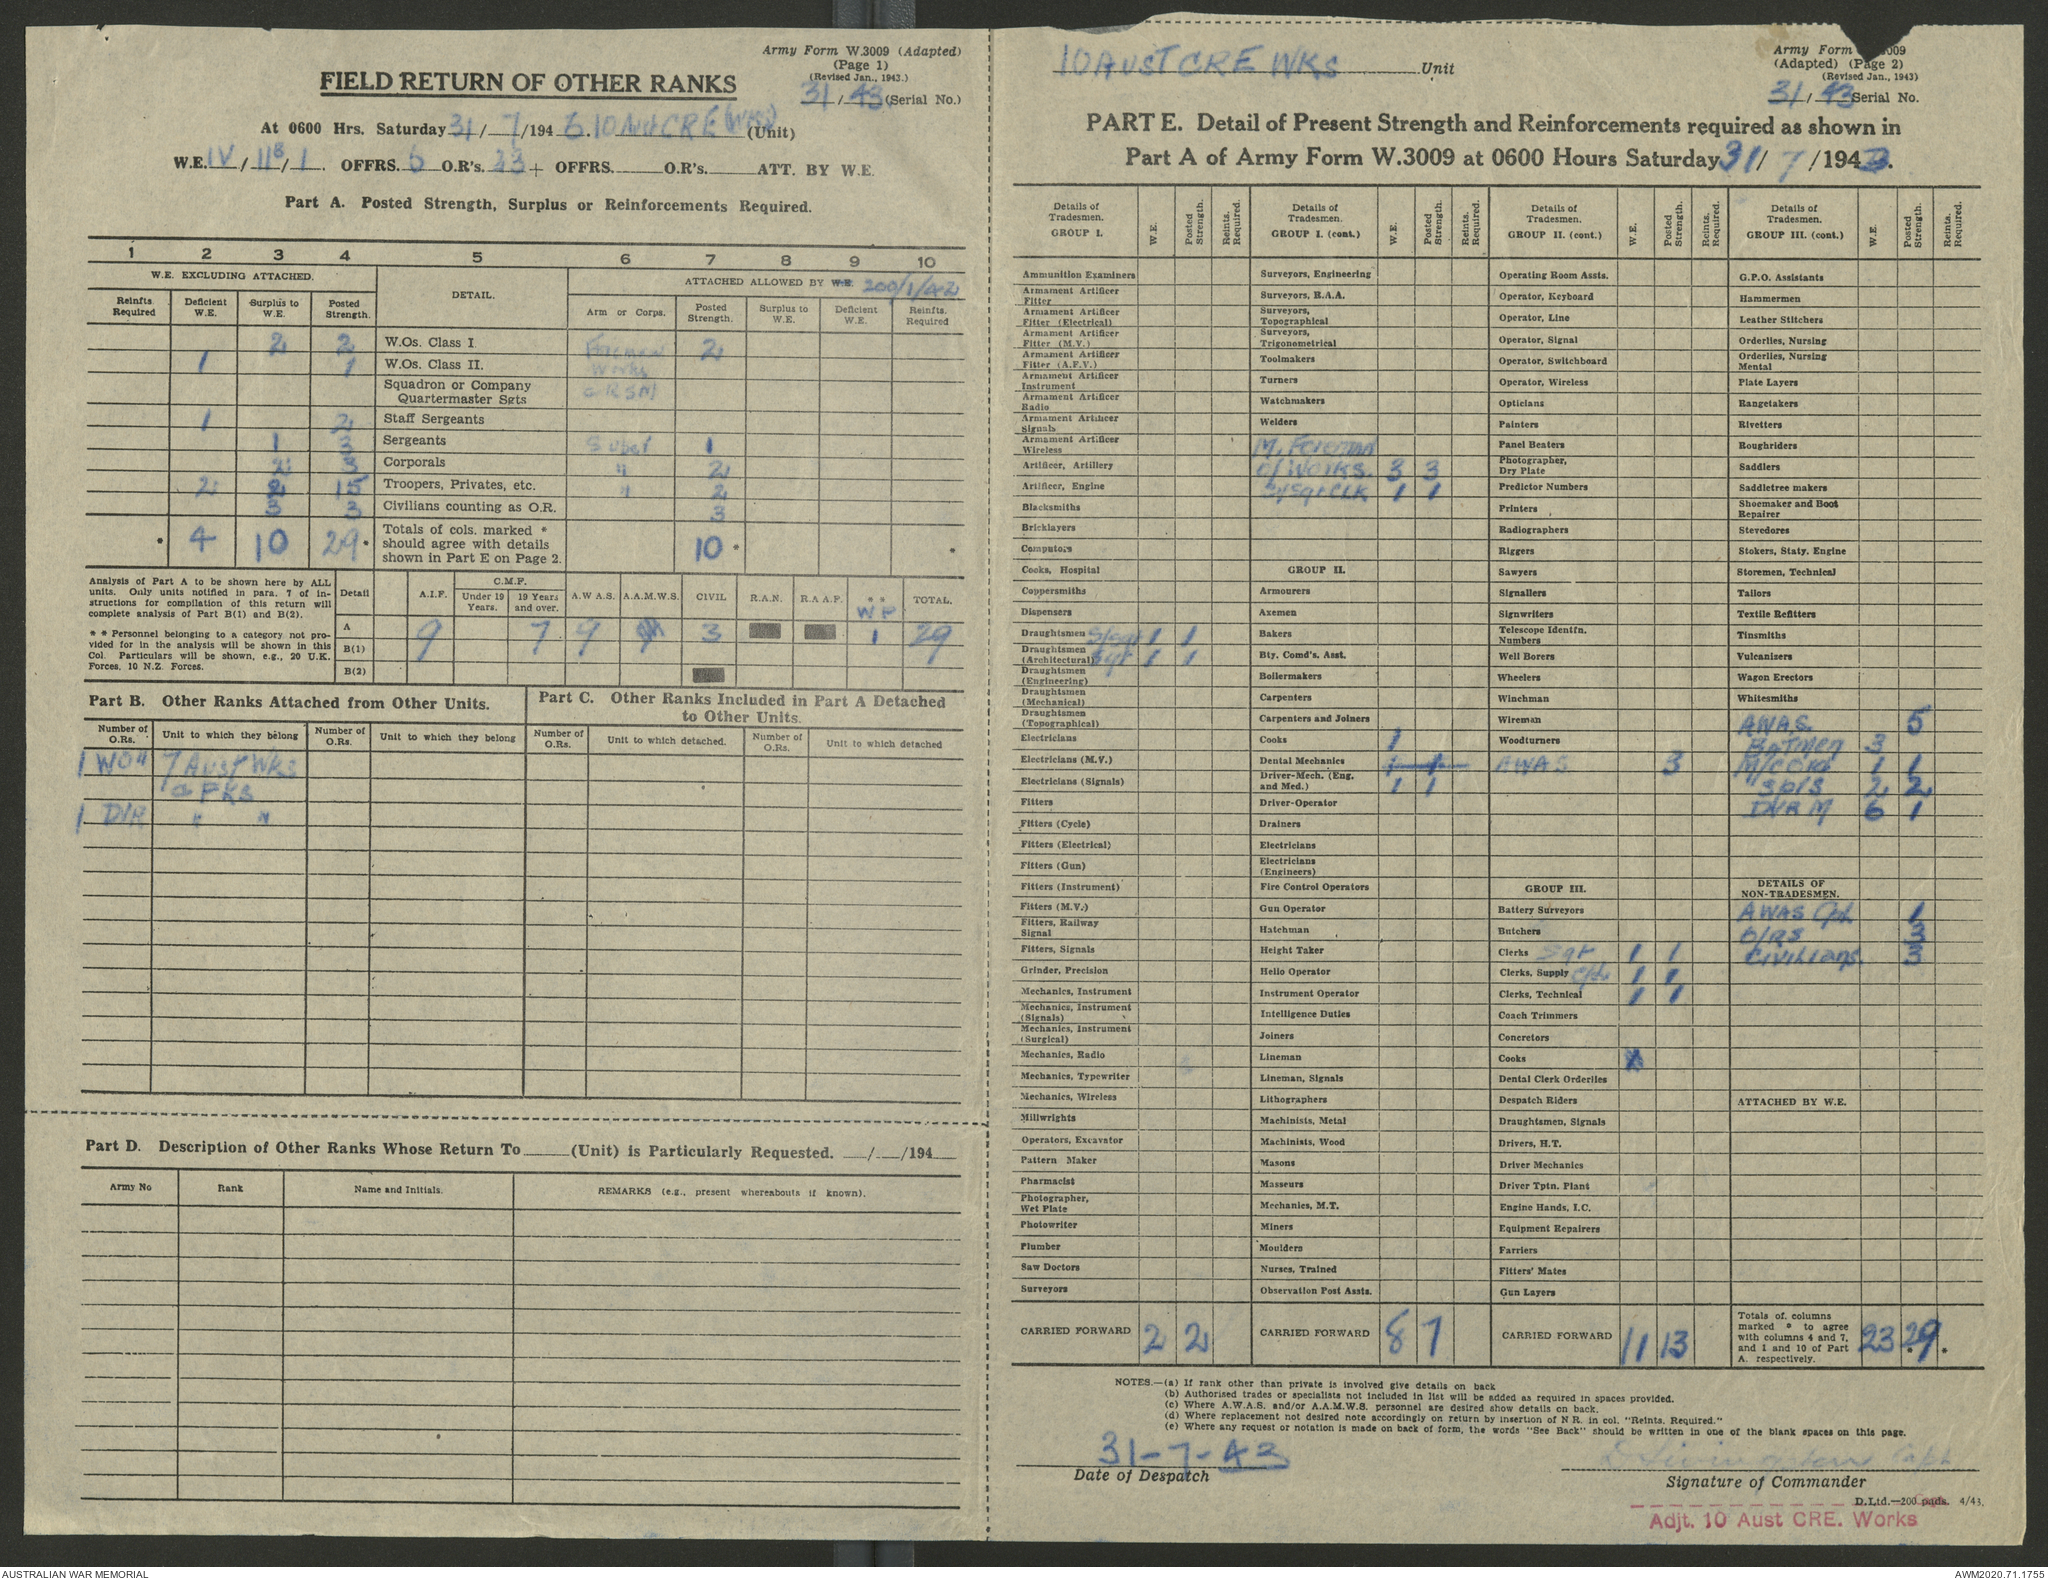 Army Form W.3009 (Adapted)
(Page 1)
(Revised Jan., 1943.)
FIELD RETURN OF OTHER RANKS
31/43 (Serial No.)
At 0600 Hrs. Saturday 31/7/194 10 Aust CRE (Wks) (Unit)
W.E. IV/11B/1. OFFRS. 6 O.R's. 23 + OFFRS. O.R's. ATT. BY W.E.
Part A. Posted Strength, Surplus or Reinforcements Required.
1 2 3 4 5 6 7 8 9 10
W.E. EXCLUDING ATTACHED. DETAIL. ATTACHED ALLOWED BY W.E. 200/1/42
Reinfts Required Deficient W.E. Surplus to W.E. Posted Strength. Arm or Corps. Posted Strength. Surplus to W.E. Deficient W.E. Reinfts. Required
2 2 W.Os. Class I Foreman 2
1 1 W.Os. Class II. Works
Squadron or Company
Quartermaster Sgts & RSM
1 2 Staff Sergeants
1 3 Sergeants 1
2 3 Corporals " 2
2 2 15 Troopers, Privates, etc. " 2
3 3 Civilians counting as O.R. 3
* 4 10 29 * Totals of cols. marked * should agree with details shown in Part E on Page 2. 10 * *
Analysis of Part A to be shown here by ALL
units. Only units notified in para. 7 of in-
structions for compilation of this return will
complete analysis of Part B(1) and B(2).
* * Personnel belonging to a category not pro-
vided for in the analysis will be shown in this
Col. Particulars will be shown, e.g., 20 U.K.
Forces, 10 N.Z. Forces.
Detail A.I.F. C.M.F. Under 19 Years. 19 Years and over. A.W.A.S. A.A.M.W.S. CIVIL R.A.N. R.A.A.F. * * WP TOTAL.
A 9 7 9 3 1 29
B(1)
B(2)
Part B. Other Ranks Attached from Other Units.
Part C. Other Ranks Included in Part A Detached
to Other Units.
Number of O.Rs. Unit to which they belong Number of O.Rs. Unit to which they belong Number of O.Rs. Unit to which detached. Number of O.Rs. Unit to which detached
1 WO11 7 Aust Wks
& PKS
1 DVR " "
Part D. Description of Other Ranks Whose Return To (Unit) is Particularly Requested. / /194
Army No Rank Name and Initials. REMARKS (e.g., present whereabouts if known).
10 AUST CRE WKS Unit
Army Form 3009
(Adapted) (Page 2)
(Revised Jan., 1943)
31/43 Serial No.
PART E. Detail of Present Strength and Reinforcements required as shown in
Part A of Army Form W.3009 at 0600 Hours Saturday 31/7/1943.
Details of Tradesmen. GROUP I. W.E. Posted Strength. Reints. Required.
Ammunition Examiners
Armament Artificer Fitter
Armament Artificer Fitter (Electrical)
Armament Artificer Fitter (M.V.)
Armament Artificer Fitter (A.F.V.)
Armament Artificer Instrument
Armament Artificer Radio
Armament Artificer Signals
Armament Artificer Wireless
Artificer, Artillery
Artificer, Engine
Blacksmiths
Bricklayers
Computors
Cooks, Hospital
Coppersmiths
Dispensers
Draughtsmen S/Sgt 1 1
Draughtsmen (Architectural) Sgt 1 1
Draughtsmen (Engineering)
Draughtsmen (Mechanical)
Draughtsmen (Topographical)
Electricians
Electricians (M.V.)
Electricians (Signals)
Fitters
Fitters (Cycle)
Fitters (Electrical)
Fitters (Gun)
Fitters (Instrument)
Fitters (M.V.)
Fitters, Railway Signal
Fitters, Signals
Grinder, Precision
Mechanics, Instrument
Mechanics, Instrument (Signals)
Mechanics, Instrument (Surgical)
Mechanics, Radio
Mechanics, Typewriter
Mechanics, Wireless
Millwrights
Operators, Excavator
Pattern Maker
Pharmacist
Photographer, Wet Plate
Photowriter
Plumber
Saw Doctors
Surveyors
CARRIED FORWARD 2 2
Details of Tradesmen. GROUP I. (cont.) W.E. Posted Strength. Reints. Required.
Surveyors, Engineering
Surveyors, R.A.A.
Surveyors, Topographical
Surveyors, Trigonometrical
Toolmakers
Turners
Watchmakers
Welders
M. Foreman
O/Works. 3 3
S/Sgt CLK 1 1
GROUP II.
Armourers
Axemen
Bakers
Bty. Comd's. Asst.
Boilermakers
Carpenters
Carpenters and Joiners
Cooks 1
Dental Mechanics 1 1
Driver-Mech. (Eng. and Med.) 1 1
Driver-Operator
Drainers
Electricians
Electricians (Engineers)
Fire Control Operators
Gun Operator
Hatchman
Height Taker
Hello Operator
Instrument Operator
Intelligence Duties
Joiners
Lineman
Lineman, Signals
Lithographers
Machinists, Metal
Machinists, Wood
Masons
Masseurs
Mechanics, M.T.
Miners
Moulders
Nurses, Trained
Observation Post Assts.
CARRIED FORWARD 8 7
Details of Tradesmen. GROUP II. (cont.) W.E. Posted Strength. Reints. Required.
Operating Room Assts.
Operator, Keyboard
Operator, Line
Operator, Signal
Operator, Switchboard
Operator, Wireless
Opticians
Painters
Panel Beaters
Photographer, Dry Plate
Predictor Numbers
Printers
Radiographers
Riggers
Sawyers
Signallers
Signwriters
Telescope Identfn. Numbers
Well Borers
Wheelers
Winchman
Wireman
Woodturners
AWAS 3
GROUP III.
Battery Surveyors
Butchers
Clerks Sgt 1 1
Clerks, Supply Cpl 1 1
Clerks, Technical 1 1
Coach Trimmers
Concretors
Cooks
Dental Clerk Orderlies
Despatch Riders
Draughtsmen, Signals
Drivers, H.T.
Driver Mechanics
Driver Tptn. Plant
Engine Hands, I.C.
Equipment Repairers
Farriers
Fitters' Mates
Gun Layers
CARRIED FORWARD 11 13
Details of Tradesmen. GROUP III. (cont.) W.E. Posted Strength. Reints. Required.
G.P.O. Assistants
Hammermen
Leather Stitchers
Orderlies, Nursing
Orderlies, Nursing Mental
Plate Layers
Rangetakers
Rivetters
Roughriders
Saddlers
Saddletree makers
Shoemaker and Boot Repairer
Stevedores
Stokers, Staty. Engine
Storemen, Technical
Tailors
Textile Refitters
Tinsmiths
Vulcanizers
Wagon Erectors
Whitesmiths
AWAS. 5
Batmen 3
1 1
2 2
DVR M 6 1
DETAILS OF NON-TRADESMEN.
AWAS Cpl. 1
O/RS 3
Civilians. 3
ATTACHED BY W.E.
Totals of columns marked * to agree with columns 4 and 7, and 1 and 10 of Part A. respectively. 23 29 * *
NOTES.—(a) If rank other than private is involved give details on back
(b) Authorised trades or specialists not included in list will be added as required in spaces provided.
(c) Where A.W.A.S. and/or A.A.M.W.S. personnel are desired show details on back.
(d) Where replacement not desired note accordingly on return by insertion of N R. in col. "Reints. Required."
(e) Where any request or notation is made on back of form, the words "See Back" should be written in one of the blank spaces on this page.
31-7-43
Date of Despatch
Capt
Signature of Commander
D.Ltd.—200 pads. 4/43.
Adjt. 10 Aust CRE. Works
AUSTRALIAN WAR MEMORIAL
AWM2020.71.1755